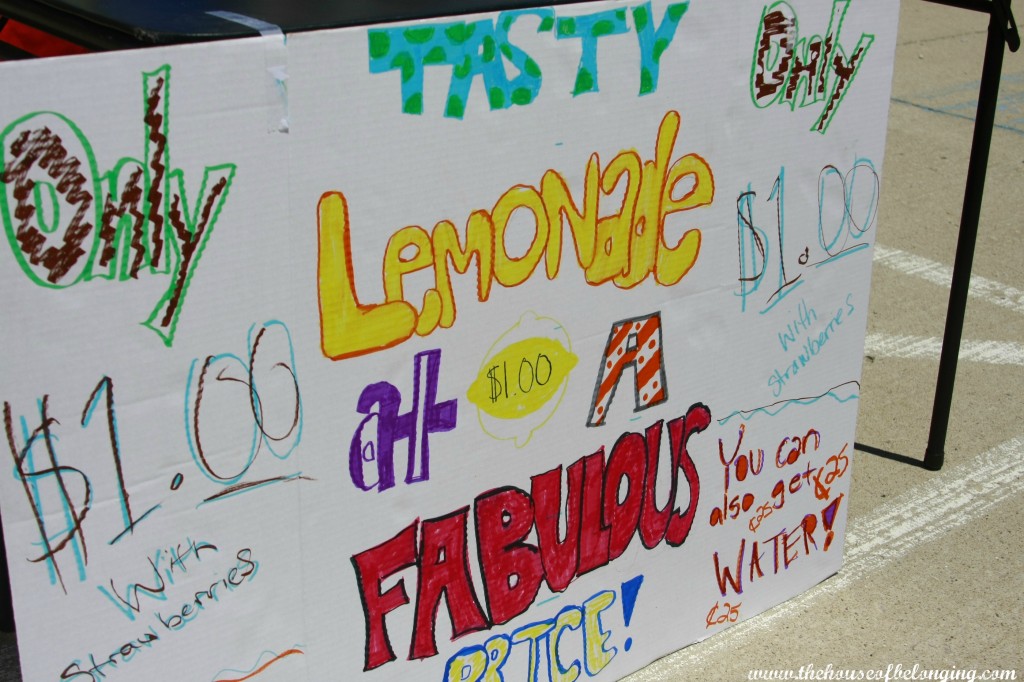 Only
$1.00
With
strawberries
TASTY
LEMONADE
at $1.00 A
FABULOUS
PRICE!
Only
$1.00
with
strawberries
You can
also get
¢25 ¢25
WATER!
¢25
www.thehouseofbelonging.com